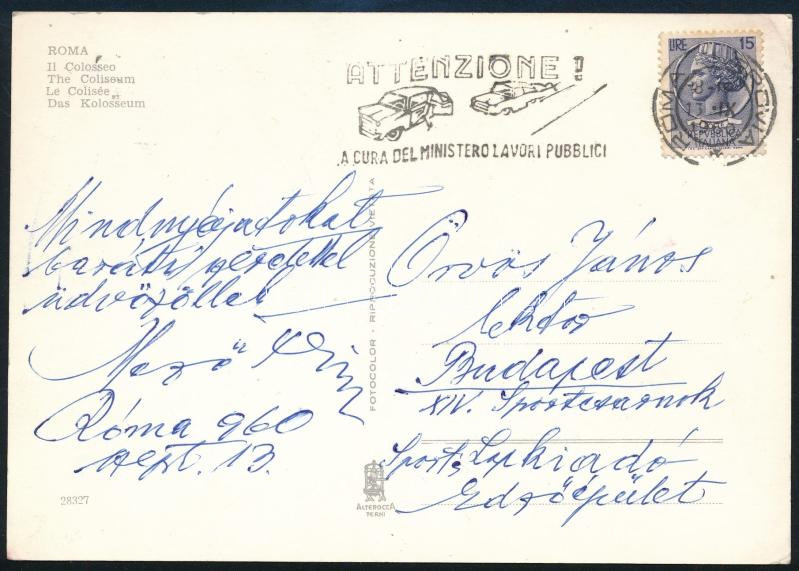 ROMA
Il Colosseo
The Coliseum
Le Colisée
Das Kolosseum
ATTENZIONE!
A CURA DEL MINISTERO LAVORI PUBBLICI
LIRE 15
ROMA FERROVIA
REPVBBLICA
ITALIANA
Mindnyájatokat
baráti szeretettel
üdvözöllek
Mező
Róma 960
szept. 13.
FOTOCOLOR - RIPRODUZIONE VIETATA
Örvös János
lektor
Budapest
XIV. Sportcsarnok
Sport, Lapkiadó
Edzőépület
ALTEROCCA
TERNI
28327